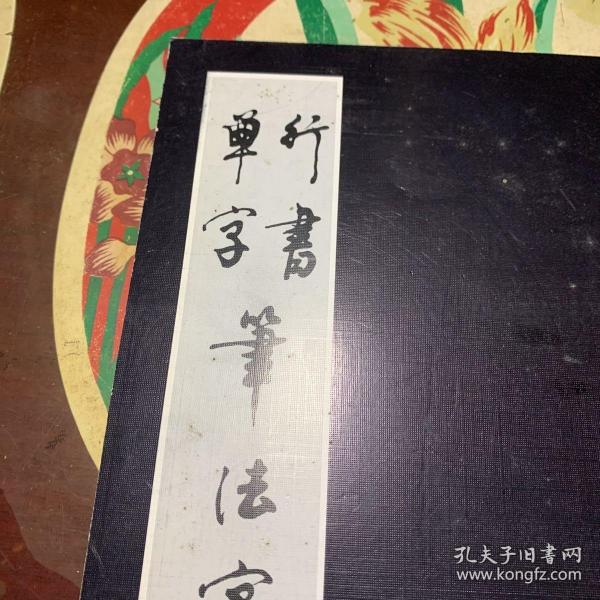 行書
単字
筆法字
孔夫子旧書网
www.kongfz.com